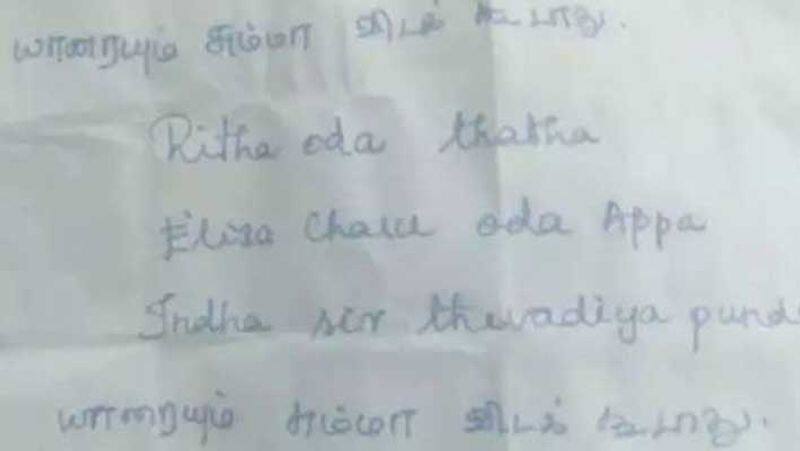 யாரையும் சும்மா விடக் கூடாது.
Ritha oda thatha
Elisa Chalu oda Appa
Indha sir thevadiya pund
யாரையும் சும்மா விடக் கூடாது.